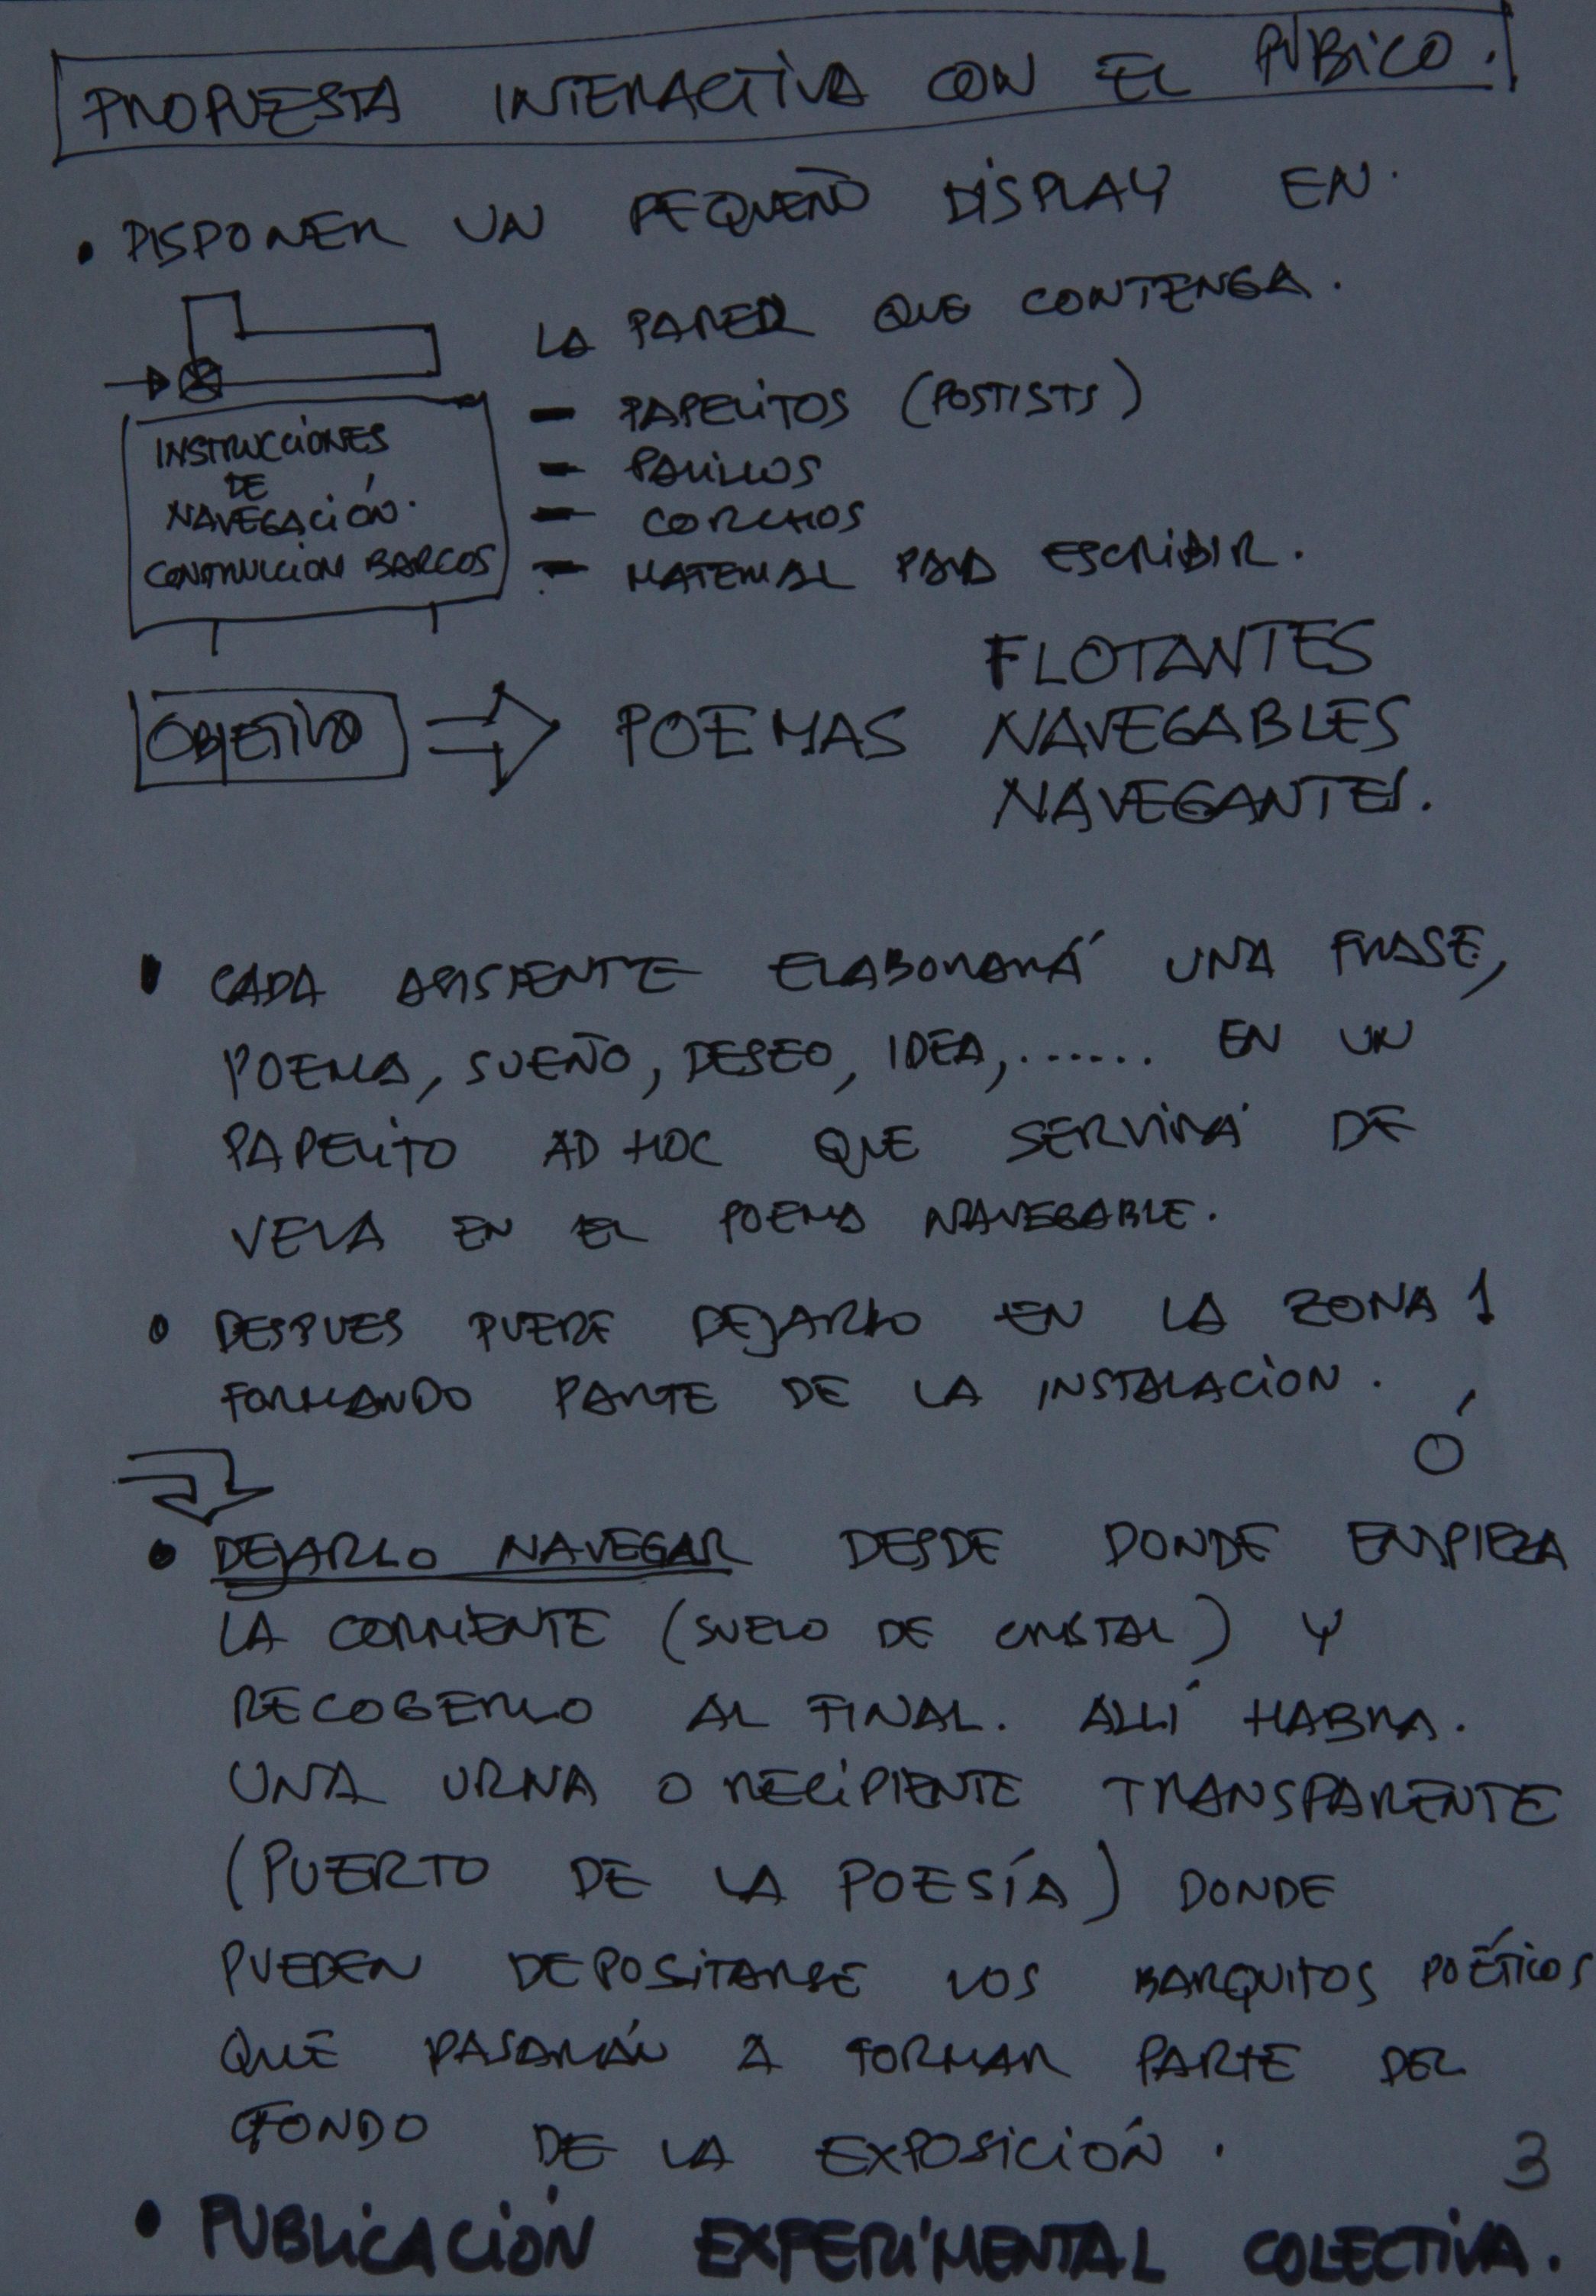 PROPUESTA INTERACTIVA CON EL PÚBICO.
• DISPONER UN PEQUEÑO DISPLAY EN
LA PARED QUE CONTENGA.
- PAPELITOS (POSTISTS)
- PALILLOS
- CORCHOS
- MATERIAL PARA ESCRIBIR.
INSTRUCCIONES
DE
NAVEGACIÓN.
CONTRUCCION BARCOS
OBJETIVO ⇒ POEMAS
FLOTANTES
NAVEGABLES
NAVEGANTES.
• CADA ASISTENTE ELABORARÁ UNA FRASE,
POEMA, SUEÑO, DESEO, IDEA,...... EN UN
PAPELITO AD HOC QUE SERVIRÁ DE
VELA EN EL POEMA NAVEGABLE.
• DESPUES PUEDE DEJARLO EN LA ZONA 1
FORMANDO PARTE DE LA INSTALACION.
Ó
• DEJARLO NAVEGAR DESDE DONDE EMPIEZA
LA CORRIENTE (SUELO DE CRISTAL) Y
RECOGERLO AL FINAL. ALLÍ HABRA.
UNA URNA O RECIPIENTE TRANSPARENTE
(PUERTO DE LA POESÍA) DONDE
PUEDEN DEPOSITARSE LOS BARQUITOS POÉTICOS
QUE PASARÁN A FORMAR PARTE DEL
FONDO DE LA EXPOSICIÓN.
3
• PUBLICACIÓN EXPERIMENTAL COLECTIVA.